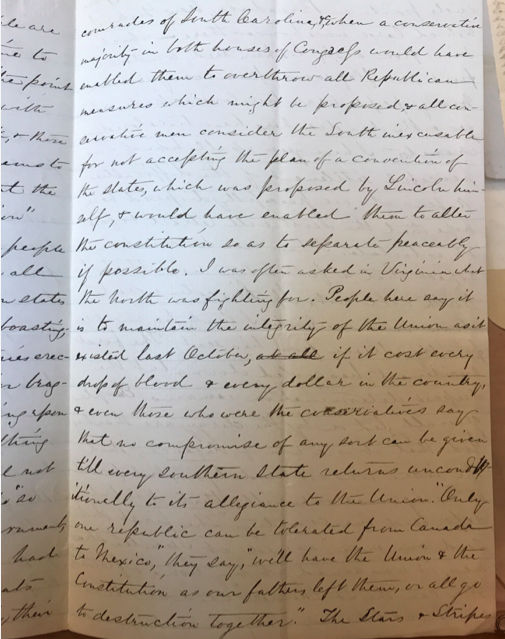 comrades of South Carolina, & when a conservative
majority in both houses of Congress would have
enabled them to overthrow all Republican
measures which might be proposed, & all con-
servative men consider the South inexcusable
for not accepting the plan of a convention of
the states, which was proposed by Lincoln him-
self, & would have enabled them to alter
the constitution so as to separate peaceably
if possible. I was often asked in Virginia what
the North was fighting for. People here say it
is to maintain the integrity of the Union as it
existed last October, at all if it cost every
drop of blood & every dollar in the country,
& even those who were the conservatives say
that no compromise of any sort can be given
till every southern State returns uncondi
tionally to its allegiance to the Union. "Only
one republic can be tolerated from Canada
to Mexico," they say, "we'll have the Union & the
Constitution as our fathers left them, or all go
to destruction together." The Stars & Stripes
le are
to
point
with
, & those
to
t the
on"
people
all
states
boasting,
brag-
upon
thing
not
so
had
their